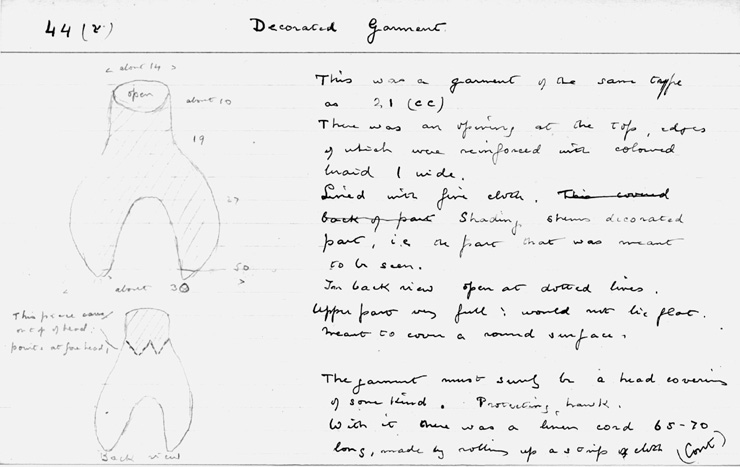 44 (r.) Decorated Garment
< about 14 >
open
about 10
19
27
50
< about 30 >
This was a garment of the same type
as 21 (cc)
There was an opening at the top, edges
of which were reinforced with coloured
braid 1 wide.
Lined with fine cloth. This covered
back of part Shading shows decorated
part, i.e. the part that was meant
to be seen.
In back view open at dotted lines.
Upper part very full: would not lie flat.
Meant to cover a round surface.
This piece came
on top of head.
points at forehead,
Back view
The garment must surely be a head covering
of some kind. Protecting hawk.
With it there was a linen cord 65-70
long, made by rolling up a strip of cloth (Cont)